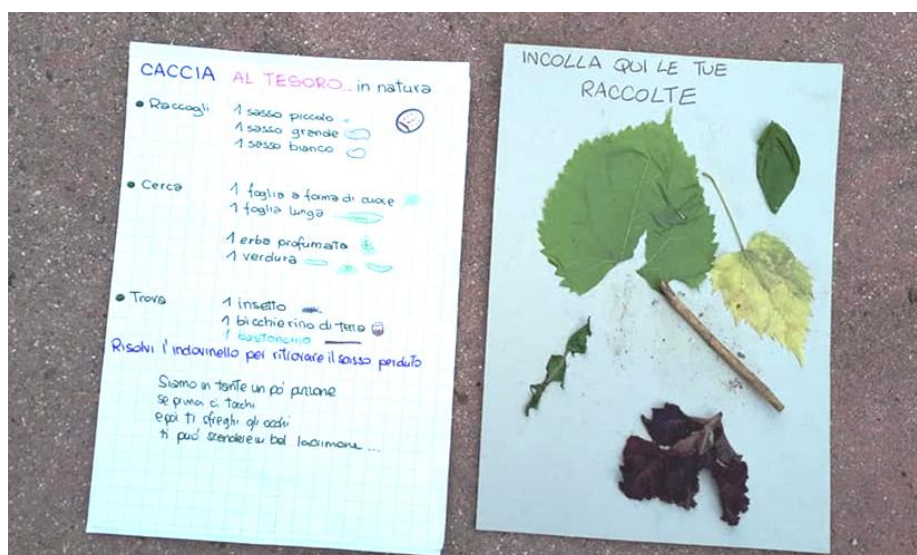 CACCIA AL TESORO.. in natura
• Raccogli 1 sasso piccolo
1 sasso grande
1 sasso bianco
• Cerca 1 foglia a forma di cuore
1 foglia lunga
1 erba profumata
1 verdura
• Trova 1 insetto
1 bicchierino di terra
1 bastoncino
Risolvi l'indovinello per ritrovare il sasso perduto
Siamo in tante un po'
se prima ci tocchi
e poi ti sfreghi gli occhi
ti può scendere un bel lacrimone ...
INCOLLA QUI LE TUE
RACCOLTE